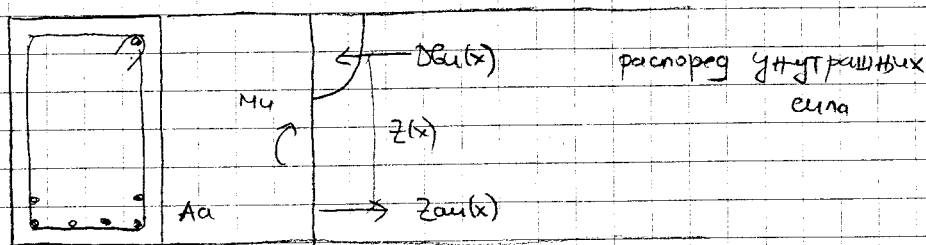 Dbu(x)
распоред унутрашњих
сила
Mu
z(x)
Aa
Zau(x)